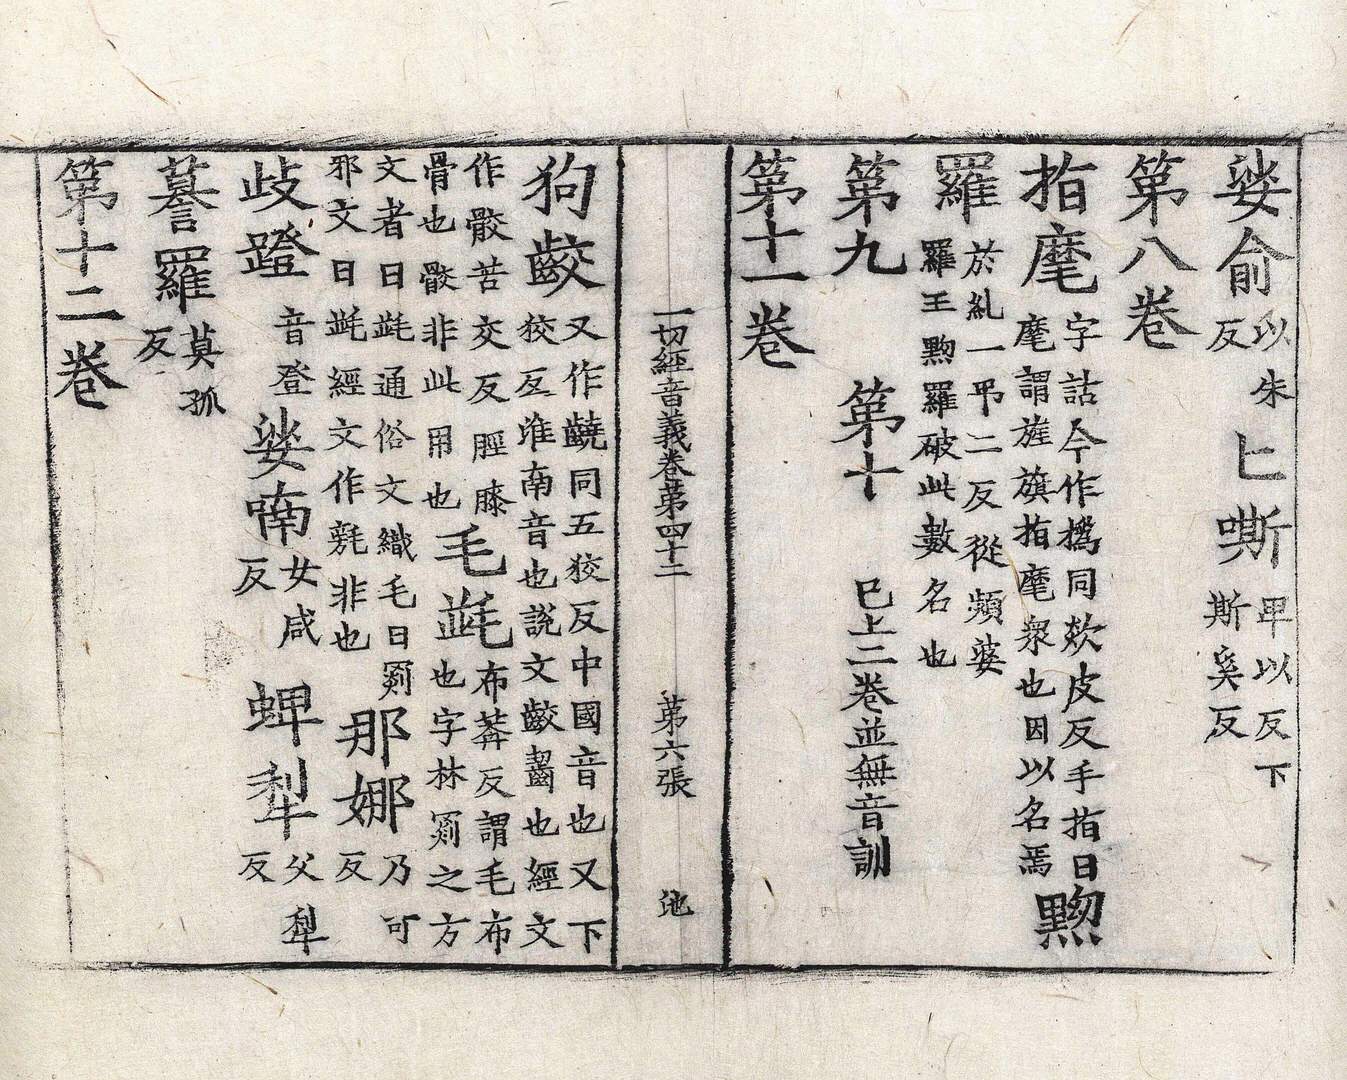 娑俞以朱反匕嘶卑以反下斯奚反
第八卷
指麾字詁今作撝同欻皮反手指曰麾謂旌旗指麾衆也因以名焉黝
羅於糺一弔二反從頻婆羅王黝羅破此數名也
第九　第十　已上二卷並無音訓
第十一卷
一切經音義卷第四十二　第六張　池
狗齩又作䶧同五狡反中國音也又下狡反淮南音也說文齩齧也經文
作骹苦交反脛膝骨也骹非此用也毛㲝布莽反謂毛布也字林罽之方
文者曰㲝通俗文織毛曰罽邪文曰㲝經文作非也那娜乃可反
歧蹬音登娑喃女咸反蜱犁父犁反
謩羅莫孤反
第十二卷